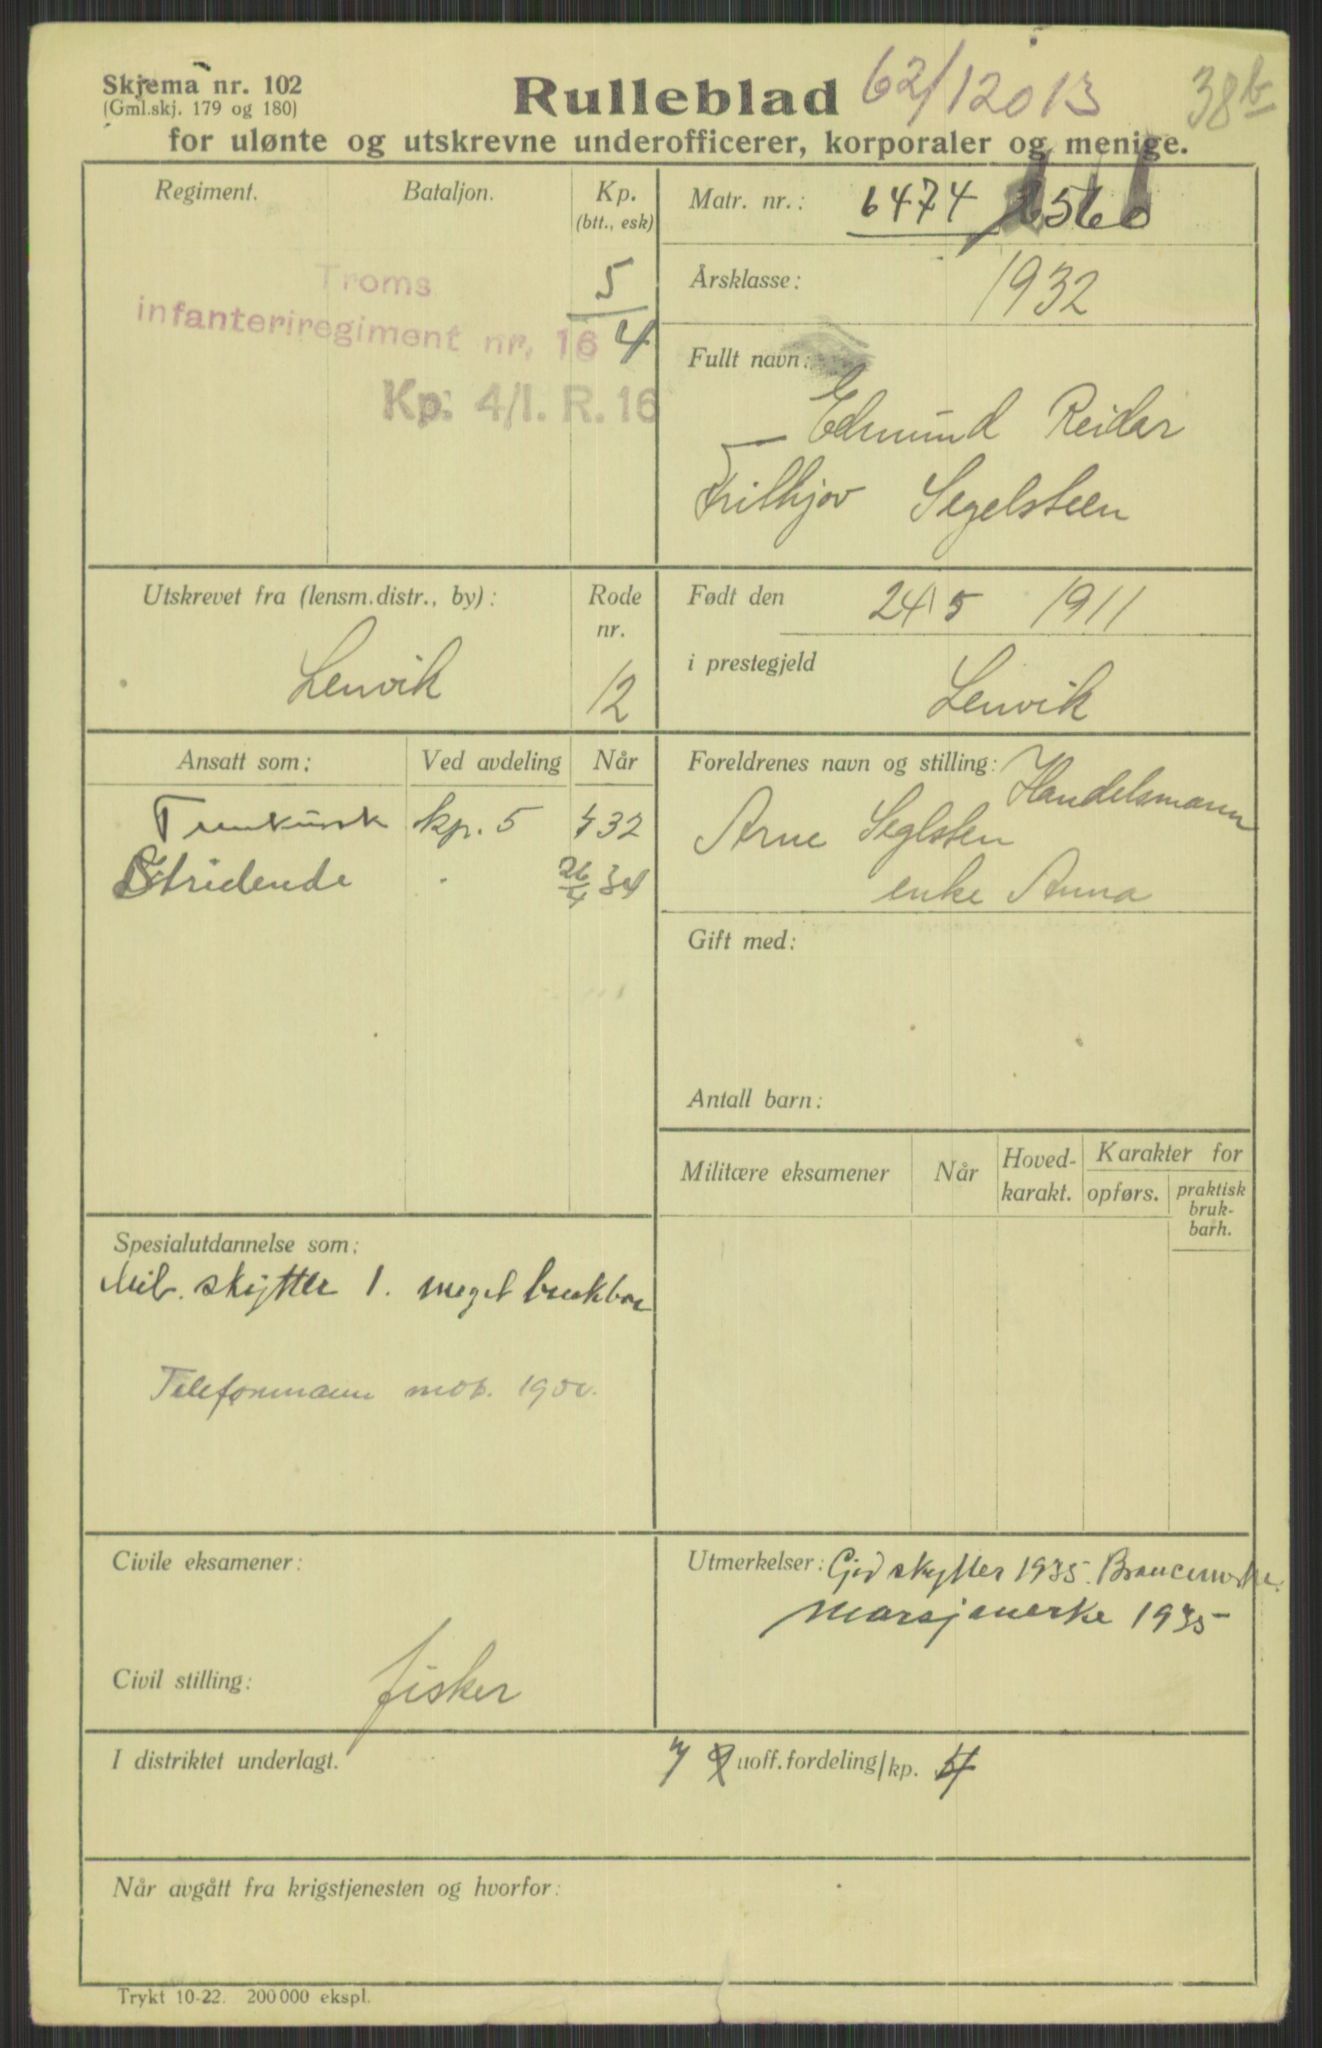 Skjema nr. 102
(Gml.skj. 179 og 180)
Rulleblad 62/12013 38b
for ulønte og utskrevne underofficerer, korporaler og menige.
Regiment. Bataljon. Kp.
(btt., esk)
Troms
infanteriregiment nr. 16
5
4
Kp: 4/I. R. 16
Matr. nr.: 6474 6560
Årsklasse: 1932
Fullt navn:
Edmund Reidar
Frithjov Segelsteen
Utskrevet fra (lensm.distr., by):
Lenvik
Rode
nr.
12
Født den 24/5 1911
i prestegjeld
Lenvik
Ansatt som: Ved avdeling Når
kp. 5 32
Stridende 26/4 34
Foreldrenes navn og stilling: Handelsmann
Arne Seglsten
enke Anna
Gift med:
Antall barn:
Militære eksamener Når Hoved-
karakt. Karakter for
opførs. praktisk
bruk-
barh.
Spesialutdannelse som:
Mil. skytter 1. meget brukbar
Telefonmann mob.
Civile eksamener:
Civil stilling: fisker
Utmerkelser: God skytter 1935.
Marsjmerke 1935
I distriktet underlagt.
uoff.fordeling/kp. 4
Når avgått fra krigstjenesten og hvorfor:
Trykt 10-22. 200 000 ekspl.